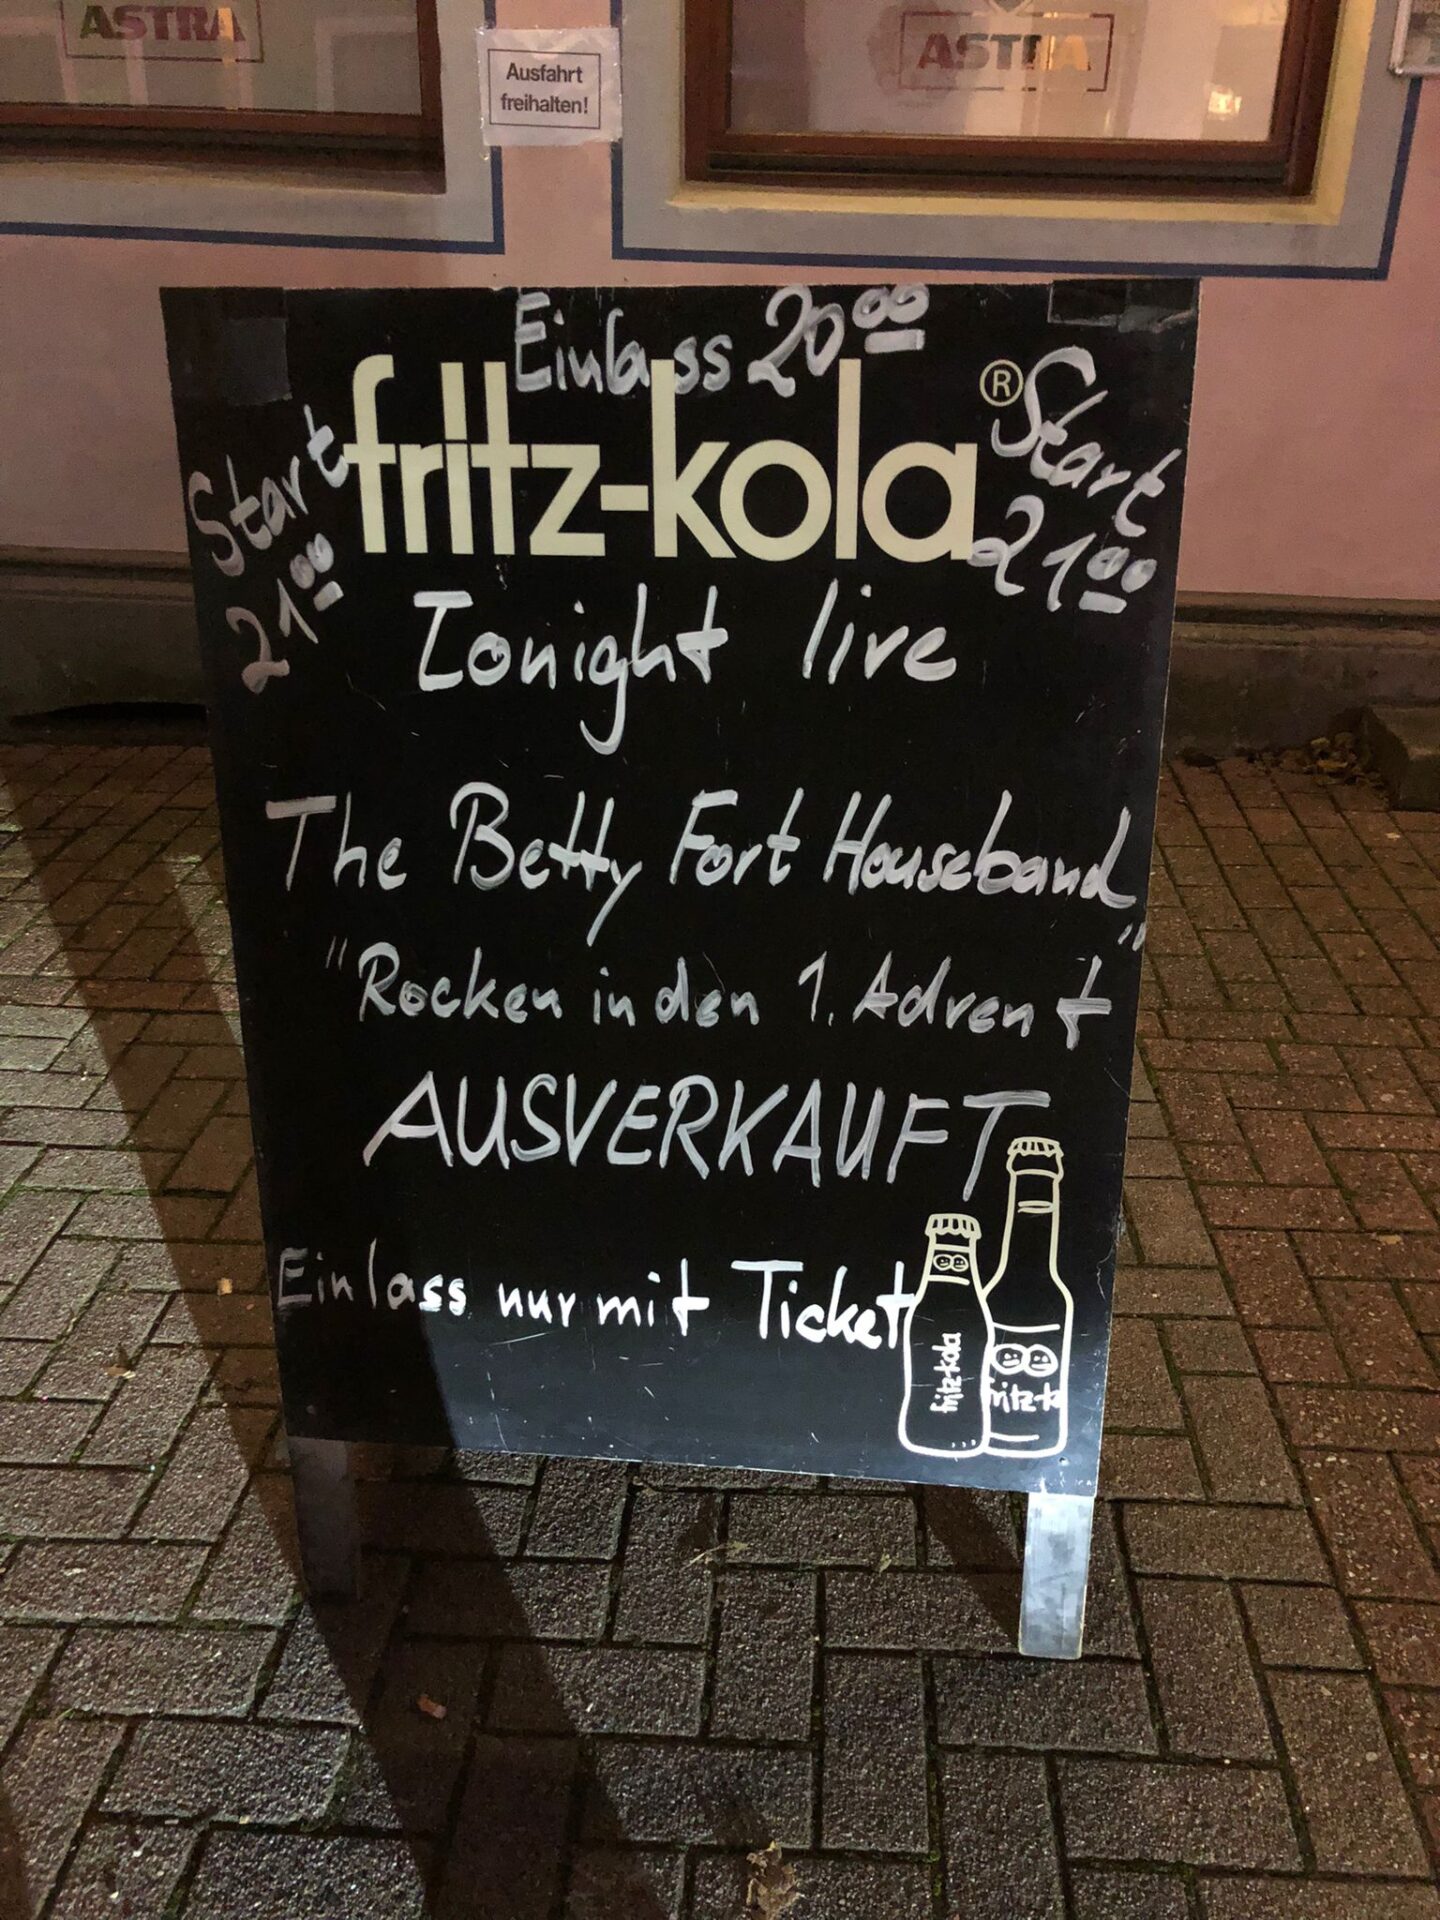 ASTRA
ASTRA
Ausfahrt
freihalten!
Einlass 20 00
fritz-kola®
Start
21 00
Start
21 00
Tonight live
The Betty Fort Houseband
"Rocken in den 1. Advent"
AUSVERKAUFT
Einlass nur mit Ticket
fritz-kola
fritz-k